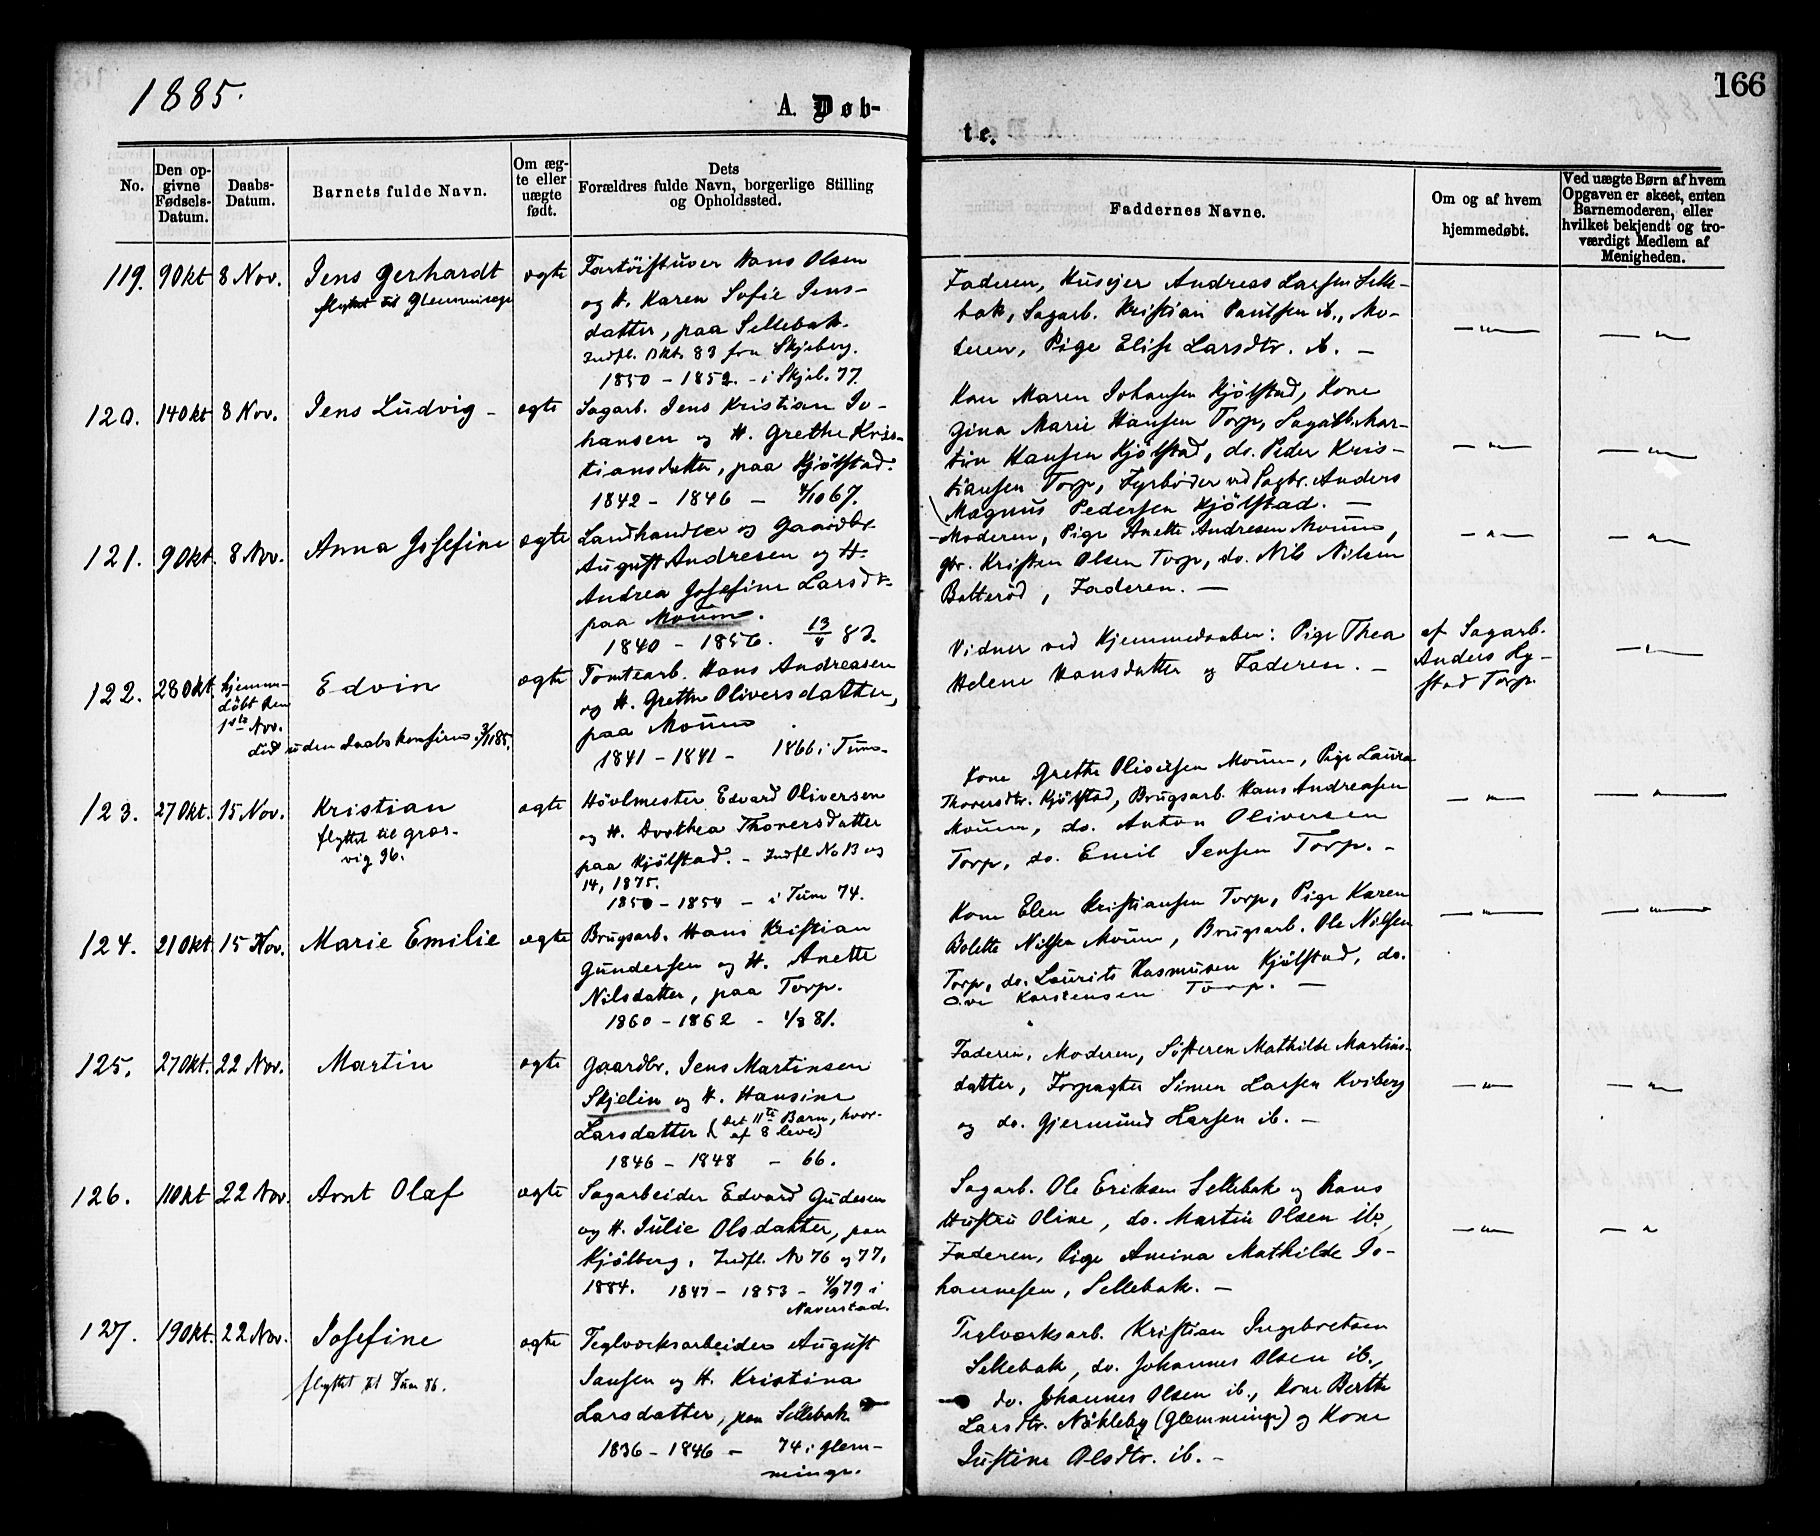 1885.
A. Døb-
te.
166
No.
Den opgivne Fødsels-Datum.
Daabs-Datum.
Barnets fulde Navn.
Om ægte eller uægte født.
Dets
Forældres fulde Navn, borgerlige Stilling
og Opholdssted.
Faddernes Navne.
Om og af hvem
hjemmedøbt.
Ved uægte Børn af hvem
Opgaven er skeet, enten
Barnemoderen, eller
hvilket bekjendt og tro-
værdigt Medlem af
Menigheden.
119. 9 Okt 8 Nov. Jens Gerhardt ægte
flyttet til Glemminge
Fartöistuver Hans Olsen
og H. Karen Sofie Jens-
datter, paa Sellebak.
Indfl. Okt. 83 fra Skjeberg.
1850 - 1852. - i Skjeb. 77.
Faderen, Husejer Andreas Larsen Selle-
bak, Sagarb. Kristian Paulsen ib., Mo-
deren, Pige Elise Larsdtr. ib. -
— " — — "
120. 14 Okt 8 Nov. Jens Ludvig - ægte
Sagarb. Jens Kristian Jo-
hansen og H. Grethe Kris-
tiansdatter, paa Kjölstad.
1842 - 1846 - 4/10 67.
Kone Maren Johansen Kjölstad, Kone
Gina Marie Hansen Torp, Sagarb. Mar-
tin Hansen Kjölstad, do. Peder Kris-
tiansen Torp, Fyrböder ved Sagbr. Anders
Magnus Pedersen Kjölstad. -
— " — — " —
121. 9 Okt. 8 Nov. Anna Josefine ægte
Landhandler og Gaardbr.
August Andresen og H.
Andrea Josefine Larsdt.
paa Moum.
1840 - 1856. 13/4 83.
Moderen, Pige Anette Andresen Moum,
Gbr. Kristen Olsen Torp, do. Nils Nilsen
Botteröd, Faderen. -
— " — — " —
122. 28 Okt. hjemme-
döbt den
1ste Nov. Edvin ægte
död uden Daabskonfirm. 3/11 85.
Tomtearb. Hans Andreasen
og H. Grethe Oliversdatter,
paa Moum
1841 - 1841 - 1866 i Tune
Vidner ved Hjemmedaaben: Pige Thea
Helene Hansdatter og Faderen. -
af Sagarb.
Anders Hy-
stad Torp.
— " —
123. 27 Okt. 15 Nov. Kristian ægte
flyttet til Græs-
vig 96.
Hövlmester Edvard Oliversen
og H. Dorthea Thoversdatter
paa Kjölstad. - Indfl No 13 og
14, 1875.
1850 - 1854 - i Tune 74.
Kone Grethe Oliversen Moum, Pige Laura
Thoversdtr. Kjölstad, Brugsarb. Hans Andreasen
Moum, do. Anton Oliversen
Torp, do. Emil Jensen Torp. -
— " — — " —
124. 21 Okt 15 Nov. Marie Emilie ægte
Brugsarb. Hans Kristian
Gundersen og H. Anette
Nilsdatter, paa Torp.
1860 - 1862 - 1/8 81.
Kone Elen Kristiansen Torp, Pige Karen
Bolette Nilsen Moum, Brugsarb. Ole Nilsen
Torp, do. Laurits Rasmusen Kjölstad, do.
Ove Karstensen Torp. -
— " — — " —
125. 27 Okt. 22 Nov. Martin ægte
Gaardbr. Jens Martinsen
Skjelin og H. Hansine
Larsdatter (det 11te Barn, hvor-
af 8 leve)
1846 - 1848 - 66.
Faderen, Moderen, Søsteren Mathilde Martins-
datter, Forpagter Simen Larsen Kviberg
og do. Gjermund Larsen ib. -
— " — — " —
126. 11 Okt 22 Nov. Arnt Olaf ægte
Sagarbeider Edvard Gudesen
og H. Julie Olsdatter, paa
Kjölberg. Indfl. No 76 og 77,
1884. 1847 - 1853 - 4/9 79 i
Naverstad.
Sagarb. Ole Eriksen Sellebak og Hans
Hustru Oline, do. Martin Olsen ib.,
Faderen, Pige Amina Mathilde Jo-
hannesen, Sellebak. -
— " — — "
127. 19 Okt. 22 Nov. Josefine ægte
flyttet til Tune 86.
Teglværksarbeider August
Jansen og H. Kristina
Larsdatter, paa Sellebak
1836 - 1846 - 74 i Glem-
minge.
Teglværksarb. Kristian Ingebretsen
Sellebak, do. Johannes Olsen ib.,
do. Johannes Olsen ib., Kone Berthe
Larsdtr. Nökleby (Glemminge) og Kone
Justine Olsdtr. ib. -